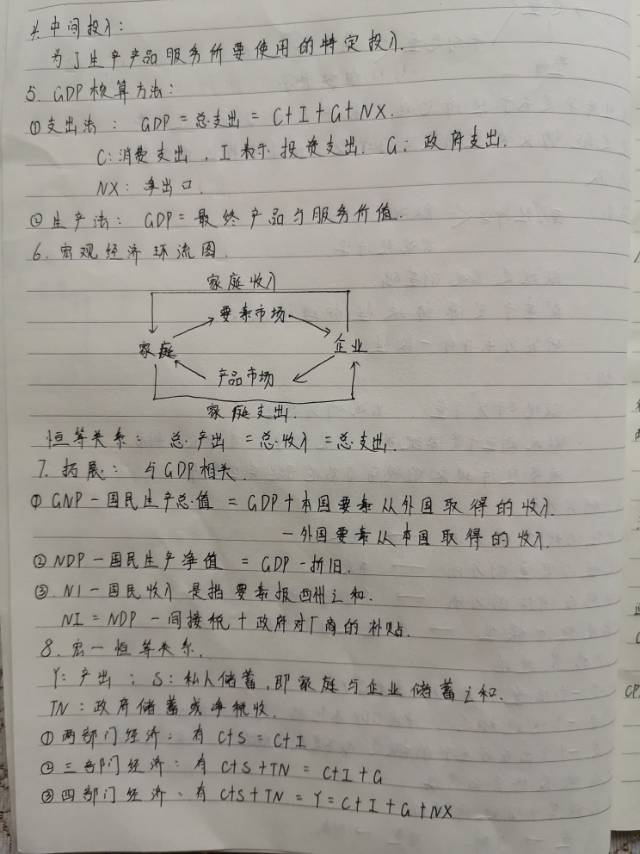 中间投入：
为了生产产品服务所要使用的特定投入.
5. GDP核算方法：
①支出法： GDP = 总支出 = C+I+G+NX.
C:消费支出 , I 表示 投资支出. G: 政府支出.
NX: 净出口.
②生产法： GDP= 最终产品与服务价值.
6. 宏观经济环流图.
家庭收入
要素市场
家庭 企业
产品市场
家庭支出.
恒等关系： 总产出 =总收入 =总支出.
7. 拓展： 与GDP相关.
① GNP-国民生产总值 = GDP+本国要素从外国取得的收入.
-外国要素从本国取得的收入.
②NDP-国民生产净值 = GDP-折旧.
③ NI-国民收入 是指要素报酬之和.
NI = NDP -间接税+政府对厂商的补贴.
8. 宏一恒等关系.
Y: 产出 ; S: 私人储蓄,即家庭与企业储蓄之和.
TN: 政府储蓄或净税收.
①两部门经济: 有 C+S = C+I
②三部门经济: 有 C+S+TN = C+I+G
③四部门经济. 有 C+S+TN = Y= C+I+G+NX
CP